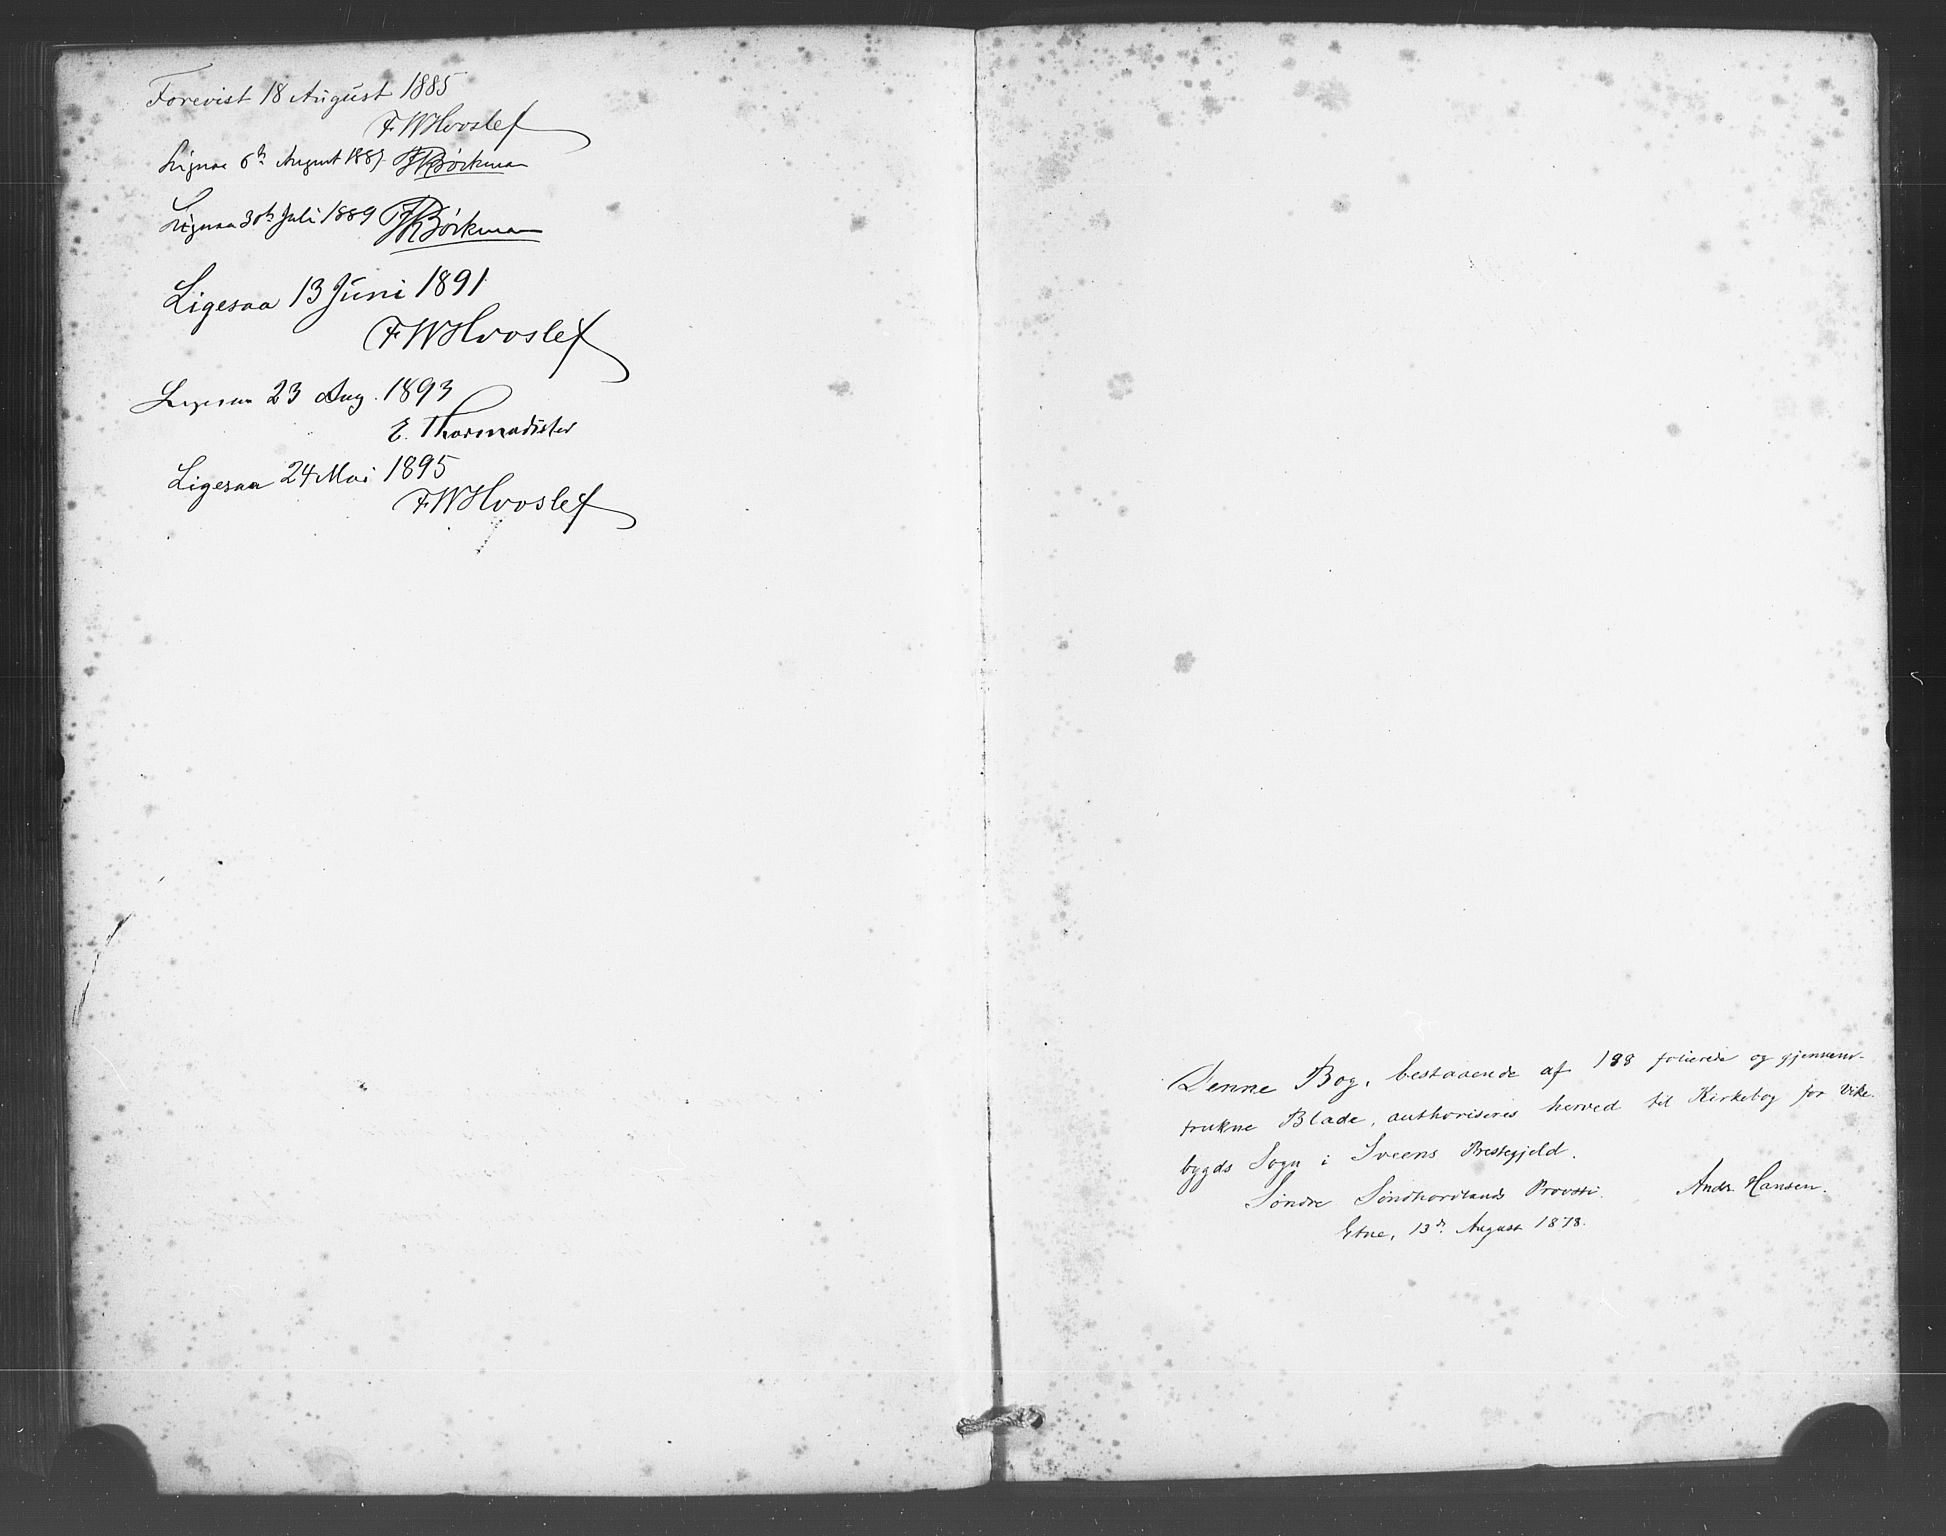 Forevist 18 August 1885
FWHvoslef
Ligesaa 6te August 1887. JRBöckman
Ligesaa 30te Juli 1889 JRBöckman
Ligesaa 13 Juni 1891
FWHvoslef
Ligesaa 23 Aug. 1893
E. Thormodsæter
Ligesaa 24 Mai 1895
FWHvoslef
Denne Bog, bestaaende af 188 folierede og gjennem-
trukne Blade, authoriseres herved til Kirkebog for Vike-
bygds Sogn i Sveens Prestegjeld.
Søndre Søndhordlands Provsti. Andr. Hansen.
Etne, 13de August 1878.